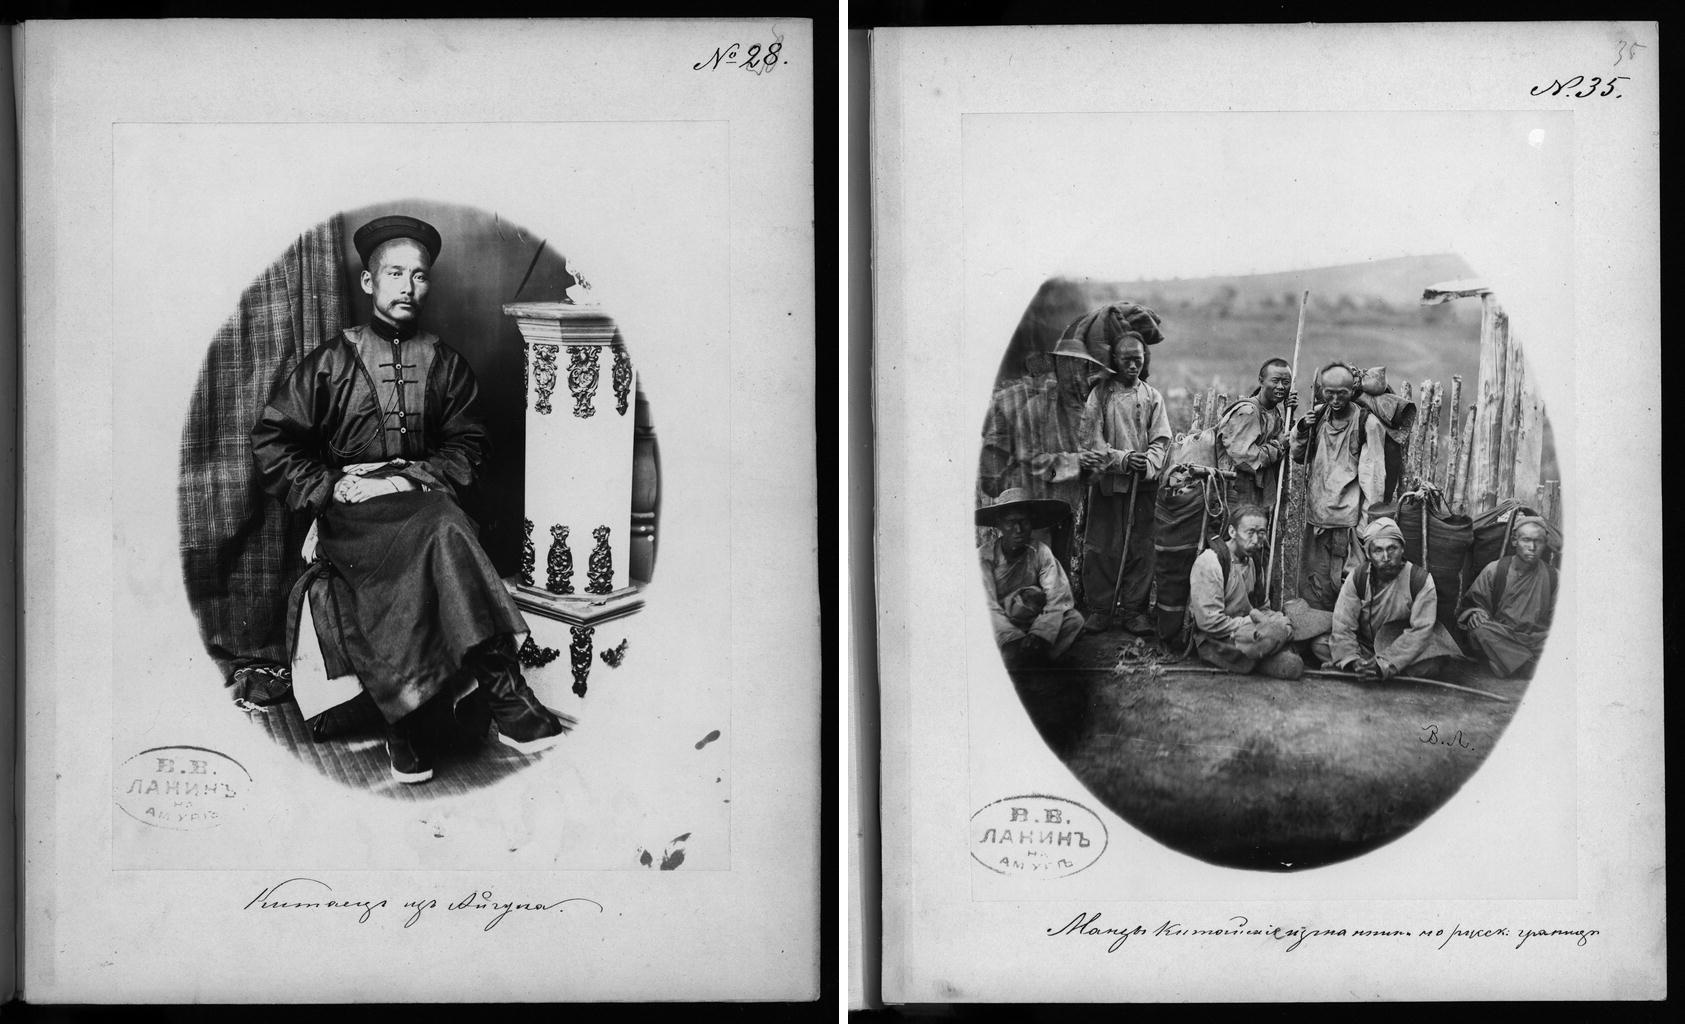 № 28.
В.В.
ЛАНИНЪ
НА
АМУРѢ
Китаецъ изъ Айгуна.
35
№.35.
В.Л.
В.В.
ЛАНИНЪ
НА
АМУРѢ
Манзы китайскіе изгнанники по русск: границѣ